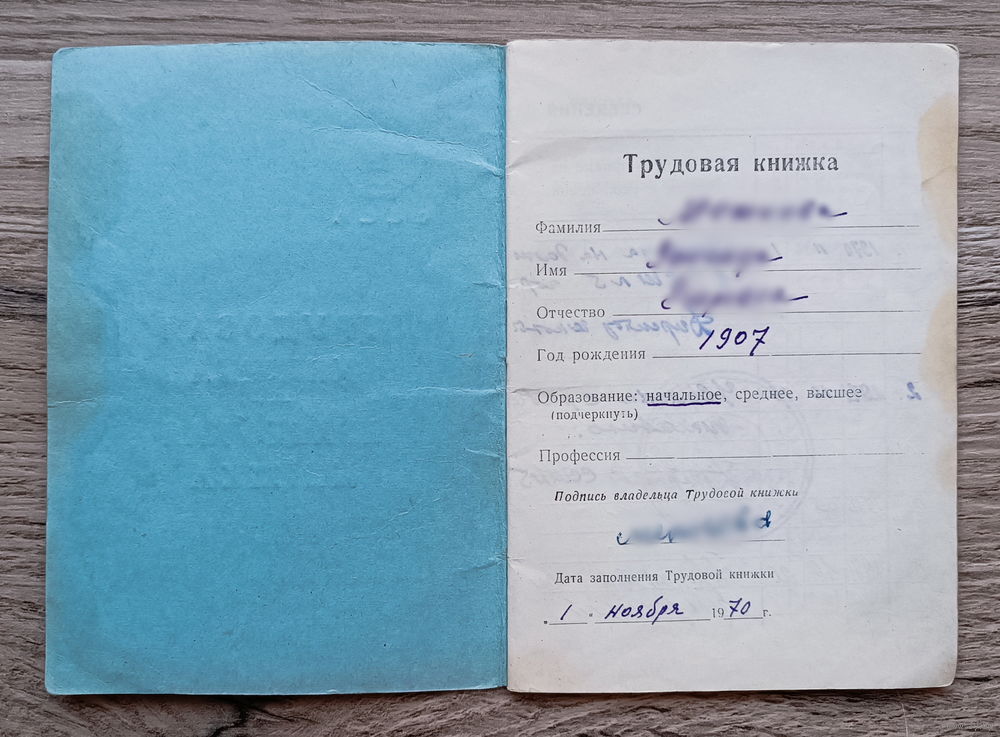 Трудовая книжка
Фамилия
Имя
Отчество
Год рождения 1907
Образование: начальное, среднее, высшее
(подчеркнуть)
Профессия
Подпись владельца Трудовой книжки
Дата заполнения Трудовой книжки
„ 1 " ноября 1970 г.